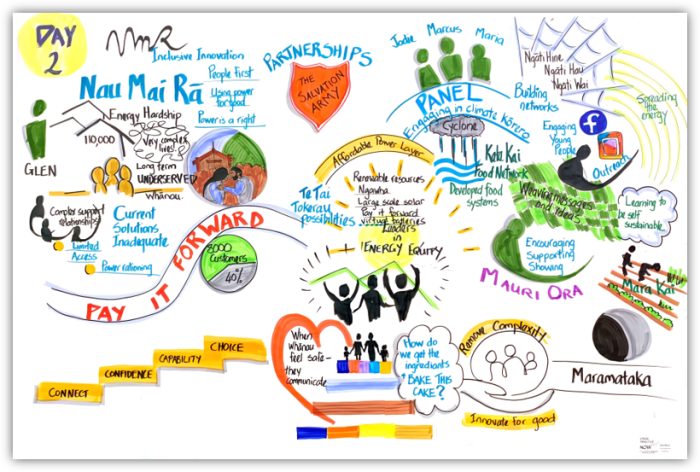 DAY
2
Inclusive Innovation
Nau Mai Rā
People First
Using power
for good
Power is a right
Energy Hardship
110,000
Very complex
lives
GLEN
Long term
UNDERSERVED
Whānau
Complex support
relationships
Limited
Access
Power rationing
Current
Solutions
Inadequate
PAY IT FORWARD
8000
Customers
40%
PARTNERSHIPS
THE
SALVATION
ARMY
Affordable Power Layer
Te Tai
Tokerau
possibilities
Renewable resources
Ngawha
Large scale solar
Pay it forward
virtual batteries
Leaders
in
ENERGY EQUITY
Jodie
Marcus
Maria
PANEL
Engaging in climate Kōrero
Cyclone
Kete Kai
Food Network
Developed food
systems
Ngāti Hine
Ngāti Hau
Ngāti Wai
Building
networks
Spreading
the
energy
Engaging
Young
People
f
Outreach
Weaving messages
and ideas
Learning to
be self
sustainable
Encouraging
Supporting
Showing
MAURI ORA
Mara Kai
CONNECT
CONFIDENCE
CAPABILITY
CHOICE
When
whānau
feel safe -
they
communicate
How do
we get the
ingredients
& BAKE THIS
CAKE?
Remove Complexity
Innovate for good
Maramataka